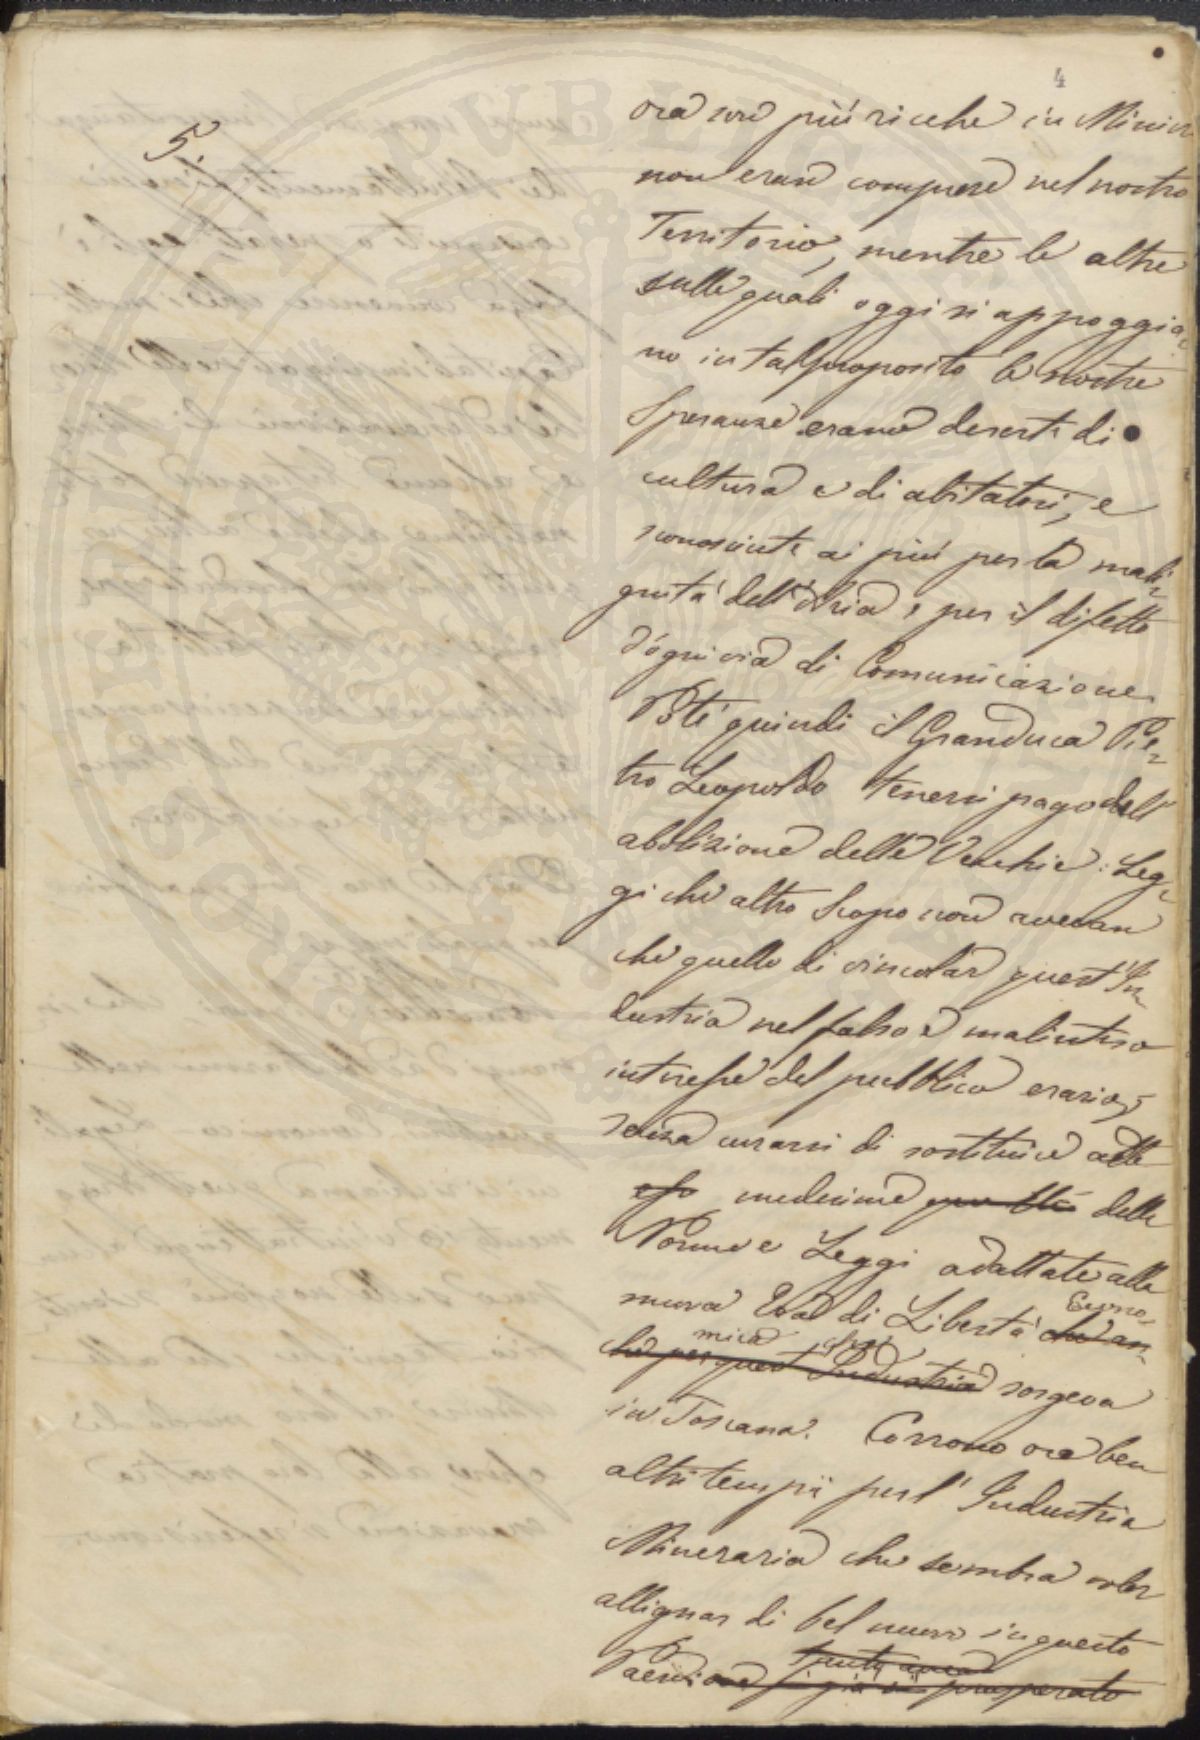 4
5.
ora sono più ricche in Minier
non eran comprese nel nostro
Territorio, mentre le altre
sulle quali oggi si appoggia-
no in tal proposito le nostre
Speranze erano deserte di
cultura e di abitatori, e
sconosciute ai più per la mali-
gnità dell'Aria e per il difetto
d'ogni via di Comunicazione.
Potè quindi il Granduca Pie-
tro Leopoldo tenersi pago dell'
abolizione delle Vecchie Leg-
gi che altro Scopo non avevan
che quello di vincolar quest'In-
dustria nel falso e malinteso
interesse del pubblico erario,
senza curarsi di sostituire alle
esse medesime delle
Norme e Leggi adattate alla
nuova Era di Libertà Econo-
che an-
mica che
che per quest'Industria sorgeva
in Toscana. Corrono ora ben
altri tempi per l'Industria
Mineraria che sembra voler
allignar di bel nuovo in questo
Paese ove già si prosperato